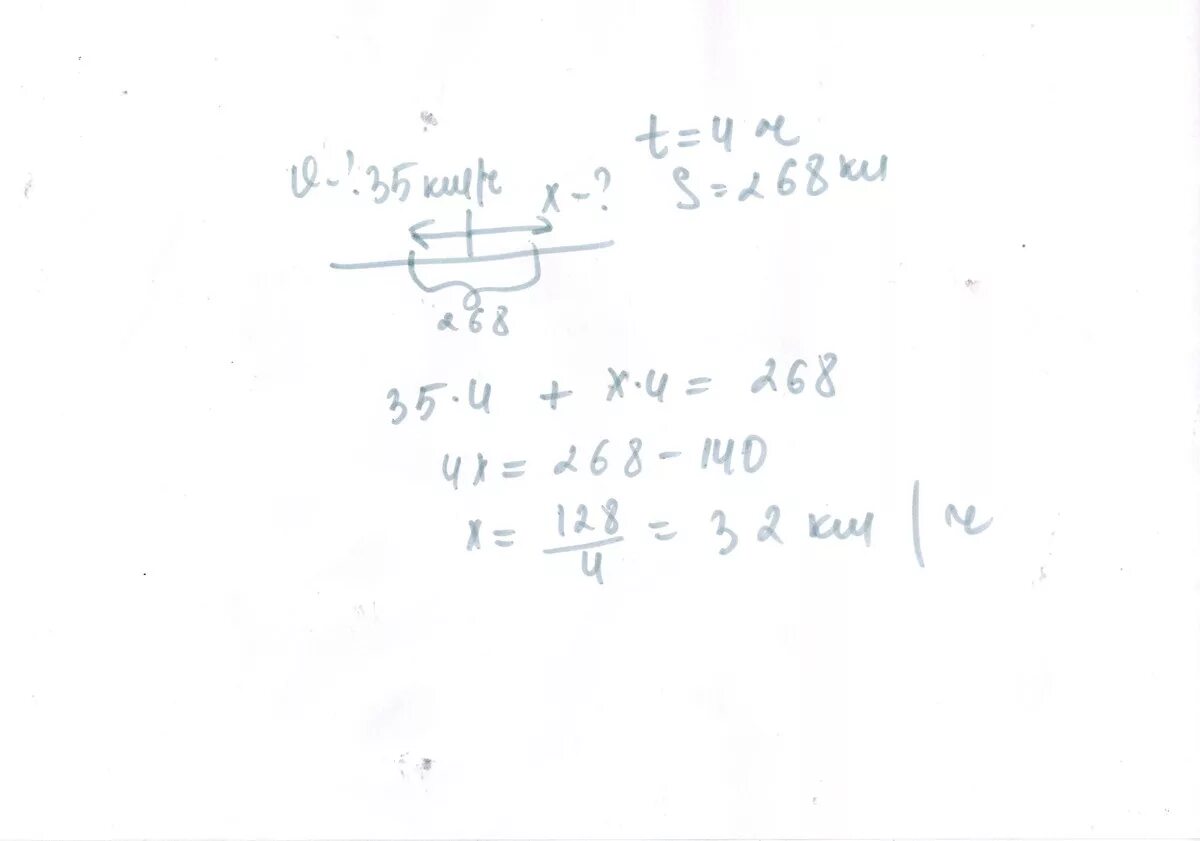 t = 4 ч
S = 268 км
υ-?. 35 км/ч
x - ?
268
35·4 + x·4 = 268
4x = 268 - 140
x = 128/4 = 32 км/ч